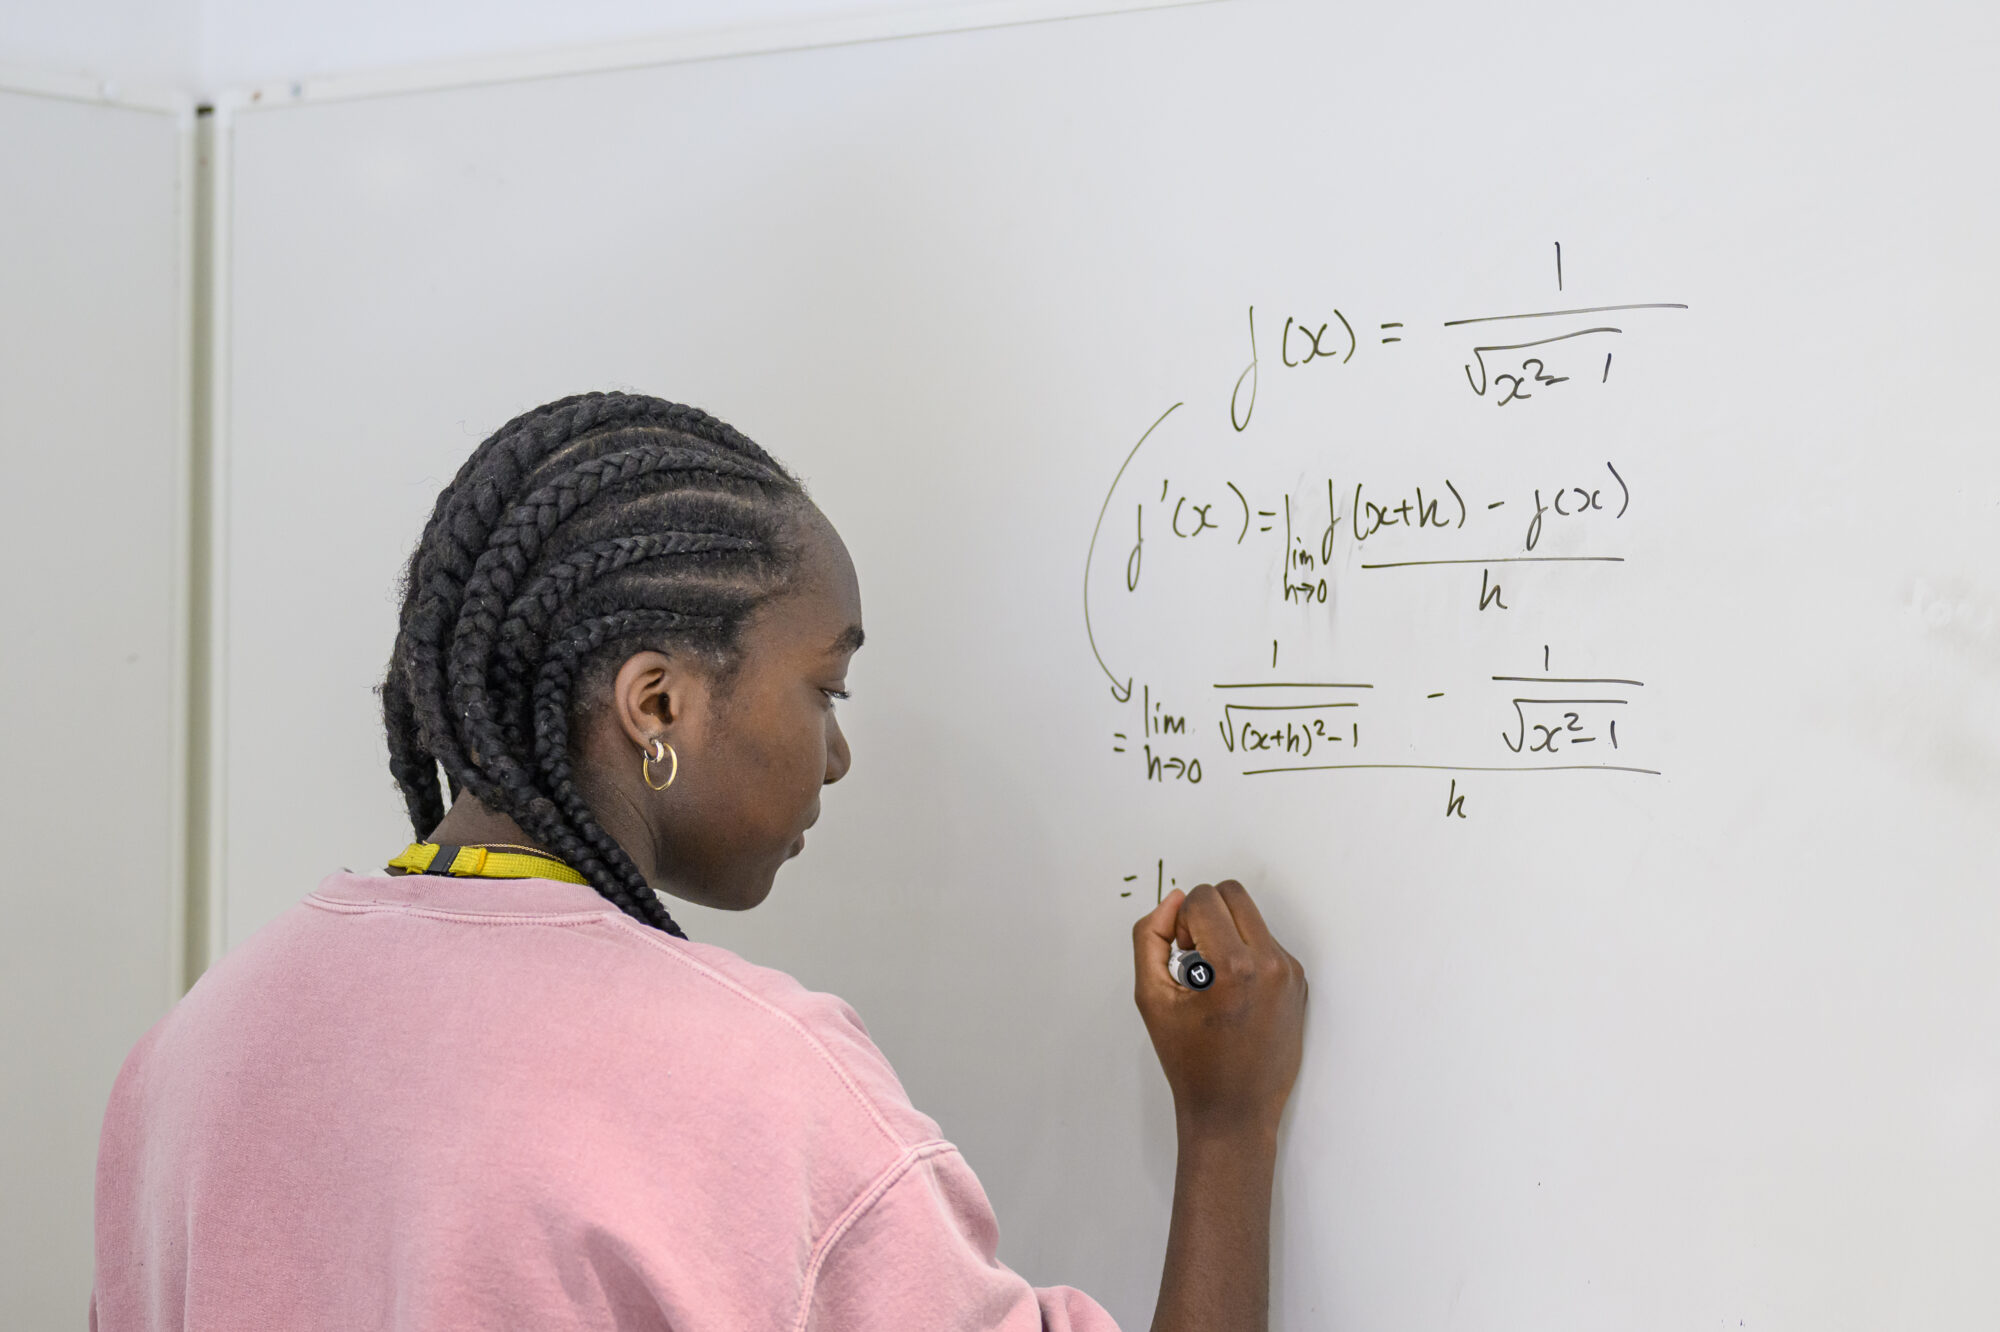 f(x) = 1/√(x² - 1)
f'(x) = lim h→0 (f(x+h) - f(x))/h
= lim h→0 (1/√((x+h)² - 1) - 1/√(x² - 1))/h
= li